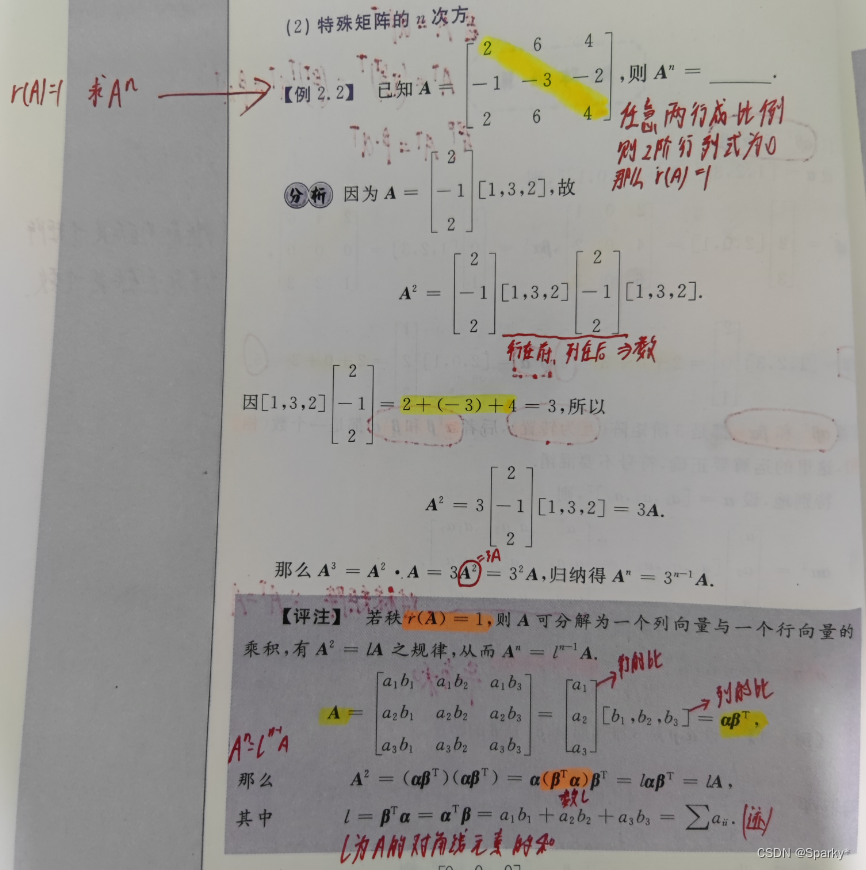 (2) 特殊矩阵的 n 次方
r(A)=1 求Aⁿ
【例 2.2】 已知 A = [2 6 4; -1 -3 -2; 2 6 4], 则 Aⁿ = ______.
任意两行成比例
则2阶行列式为0
那么 r(A)=1
分析 因为 A = [2; -1; 2] [1,3,2], 故
A² = [2; -1; 2] [1,3,2] [2; -1; 2] [1,3,2].
行在前、列在后 ⇒ 数
因[1,3,2] [2; -1; 2] = 2+(-3)+4 = 3, 所以
A² = 3 [2; -1; 2] [1,3,2] = 3A.
=3A
那么 A³ = A² · A = 3A² = 3²A, 归纳得 Aⁿ = 3ⁿ⁻¹A.
【评注】 若秩 r(A) = 1, 则 A 可分解为一个列向量与一个行向量的
乘积, 有 A² = lA 之规律, 从而 Aⁿ = lⁿ⁻¹A.
行的比
列的比
A = [a₁b₁ a₁b₂ a₁b₃; a₂b₁ a₂b₂ a₂b₃; a₃b₁ a₃b₂ a₃b₃] = [a₁; a₂; a₃] [b₁, b₂, b₃] = αβᵀ,
Aⁿ=Lⁿ⁻¹A
那么 A² = (αβᵀ)(αβᵀ) = α(βᵀα)βᵀ = lαβᵀ = lA,
数L
其中 l = βᵀα = αᵀβ = a₁b₁ + a₂b₂ + a₃b₃ = ∑aᵢᵢ. (迹)
l为A的对角线元素的和
CSDN @Sparky*